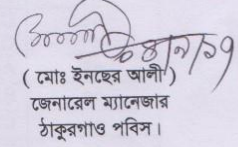 ( মোঃ ইনছের আলী )
জেনারেল ম্যানেজার
ঠাকুরগাও পবিস।